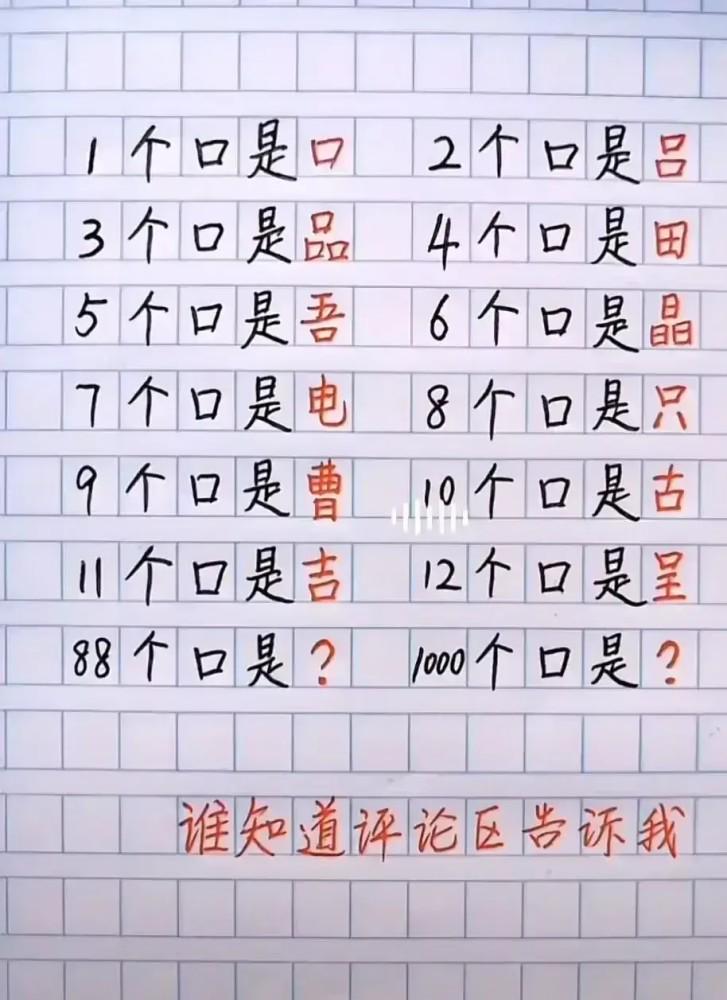 1个口是口 2个口是吕
3个口是品 4个口是田
5个口是吾 6个口是晶
7个口是电 8个口是只
9个口是曹 10个口是古
11个口是吉 12个口是呈
88个口是? 1000个口是?
谁知道评论区告诉我